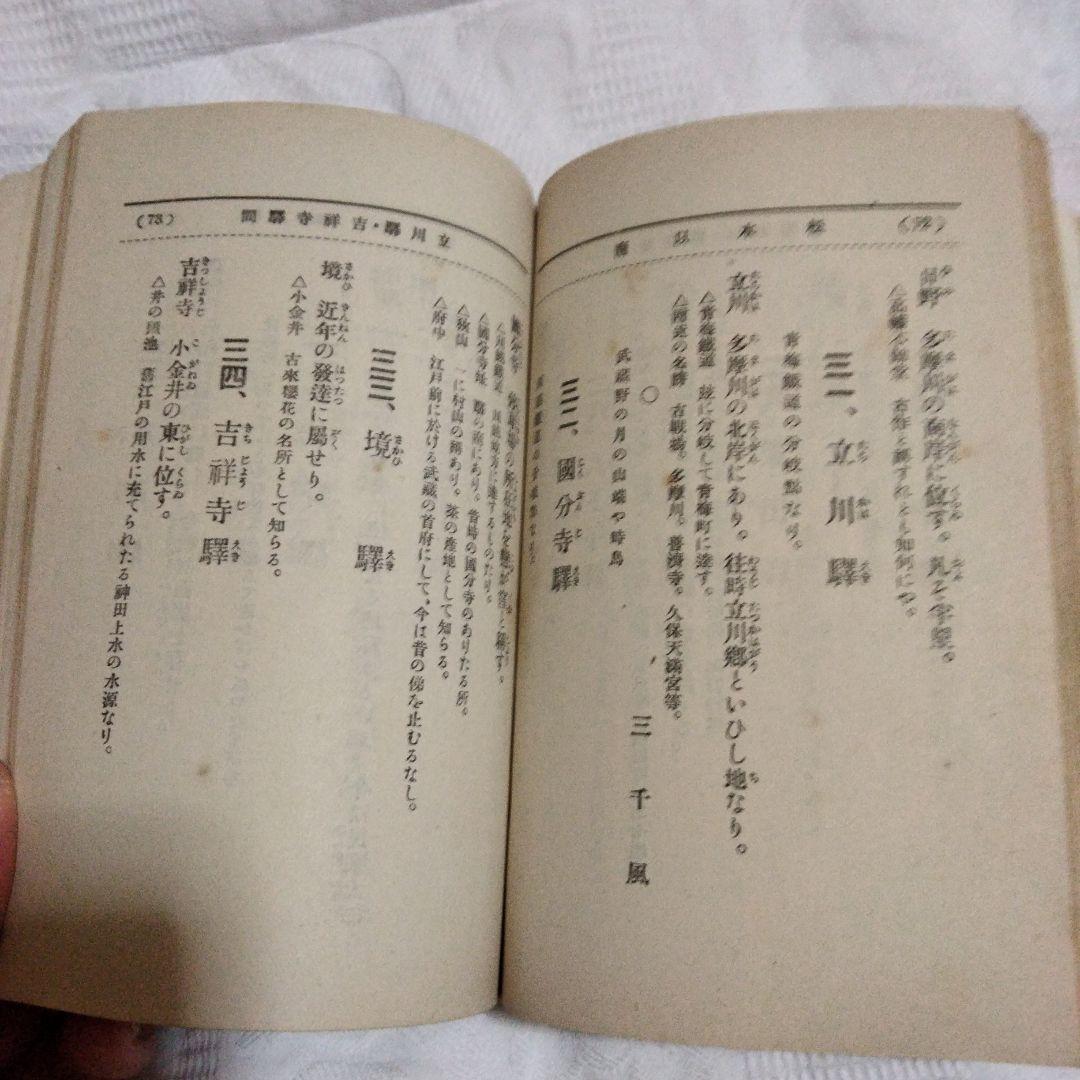 松本以南
日野 多摩川の南岸に位す。
三一、立川驛
青梅鐵道の分岐點なり。
立川 多摩川の北岸にあり。往時立川鄕といひし地なり。
△青梅鐵道 玆に分岐して青梅町に達す。
△附近の名勝 古戰場。多摩川。普濟寺。久保天滿宮等。
○
武藏野の月の山端や時鳥 三千風
三二、國分寺驛
(73)
立川驛・吉祥寺驛間
△川越鐵道 川越地方に達するものたり。
△國分寺址 驛の南にあり。昔時の國分寺のありたる所。
△狹山 一に村山の稱あり。茶の產地として知らる。
△府中 江戸前に於ける武藏の首府にして、今は昔の俤を止むるなし。
三三、境驛
境 近年の發達に屬せり。
△小金井 古來櫻花の名所として知らる。
三四、吉祥寺驛
吉祥寺 小金井の東に位す。
△井の頭池 舊江戸の用水に充てられたる神田上水の水源なり。